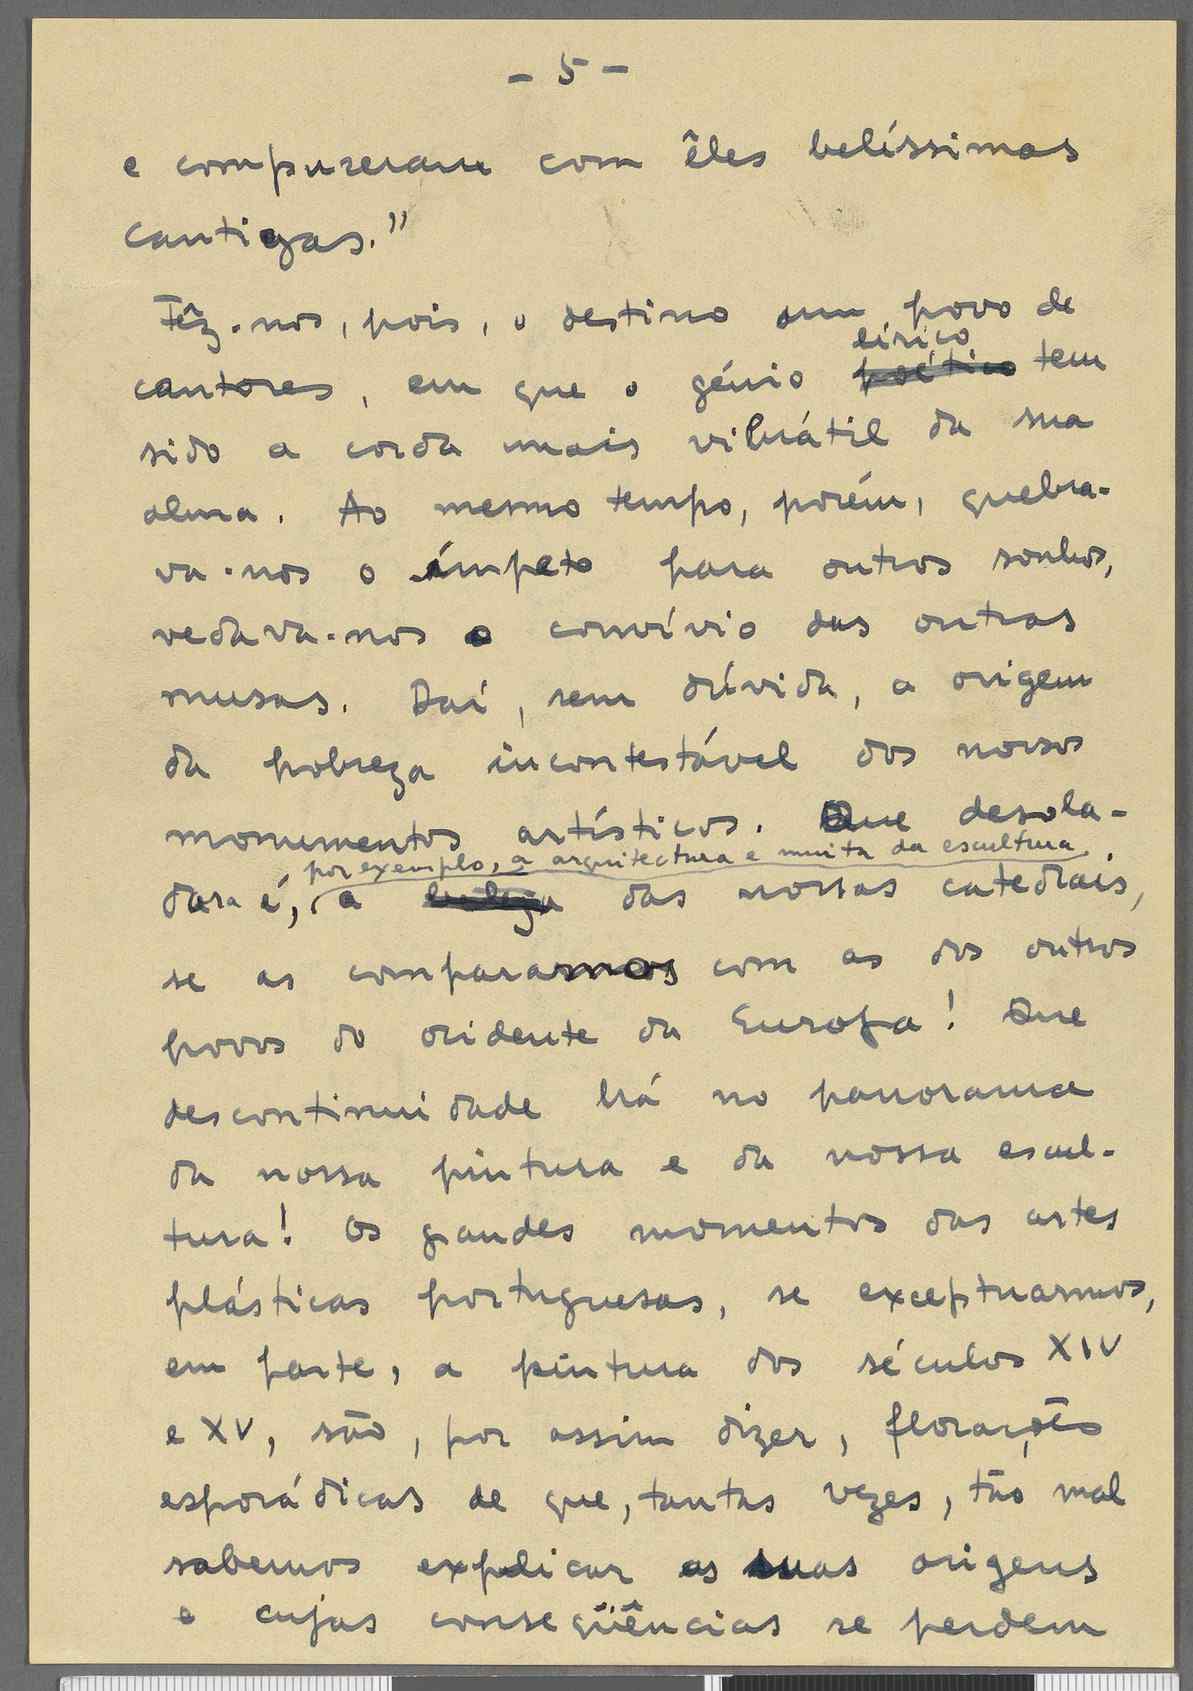 - 5 -
e compuzeram com êles belíssimas
cantigas."
Fêz-nos, pois, o destino um povo de
lírico
cantores, em que o génio poético tem
sido a corda mais vibrátil da sua
alma. Ao mesmo tempo, porém, quebra-
va-nos o ímpeto para outros sonhos,
vedava-nos o convívio das outras
musas. Daí, sem dúvida, a origem
da pobreza incontestável dos nossos
monumentos artísticos. Que desola-
por exemplo, a arquitectura e muita da escultura
dora é, a beleza das nossas catedrais,
se as comparamos com as dos outros
povos do ocidente da Europa! Que
descontinuidade há no panorama
da nossa pintura e da nossa escul-
tura! Os grandes momentos das artes
plásticas portuguesas, se exceptuarmos,
em parte, a pintura dos séculos XIV
e XV, são, por assim dizer, florações
esporádicas de que, tantas vezes, tão mal
sabemos explicar as suas origens
e cujas conseqüências se perdem